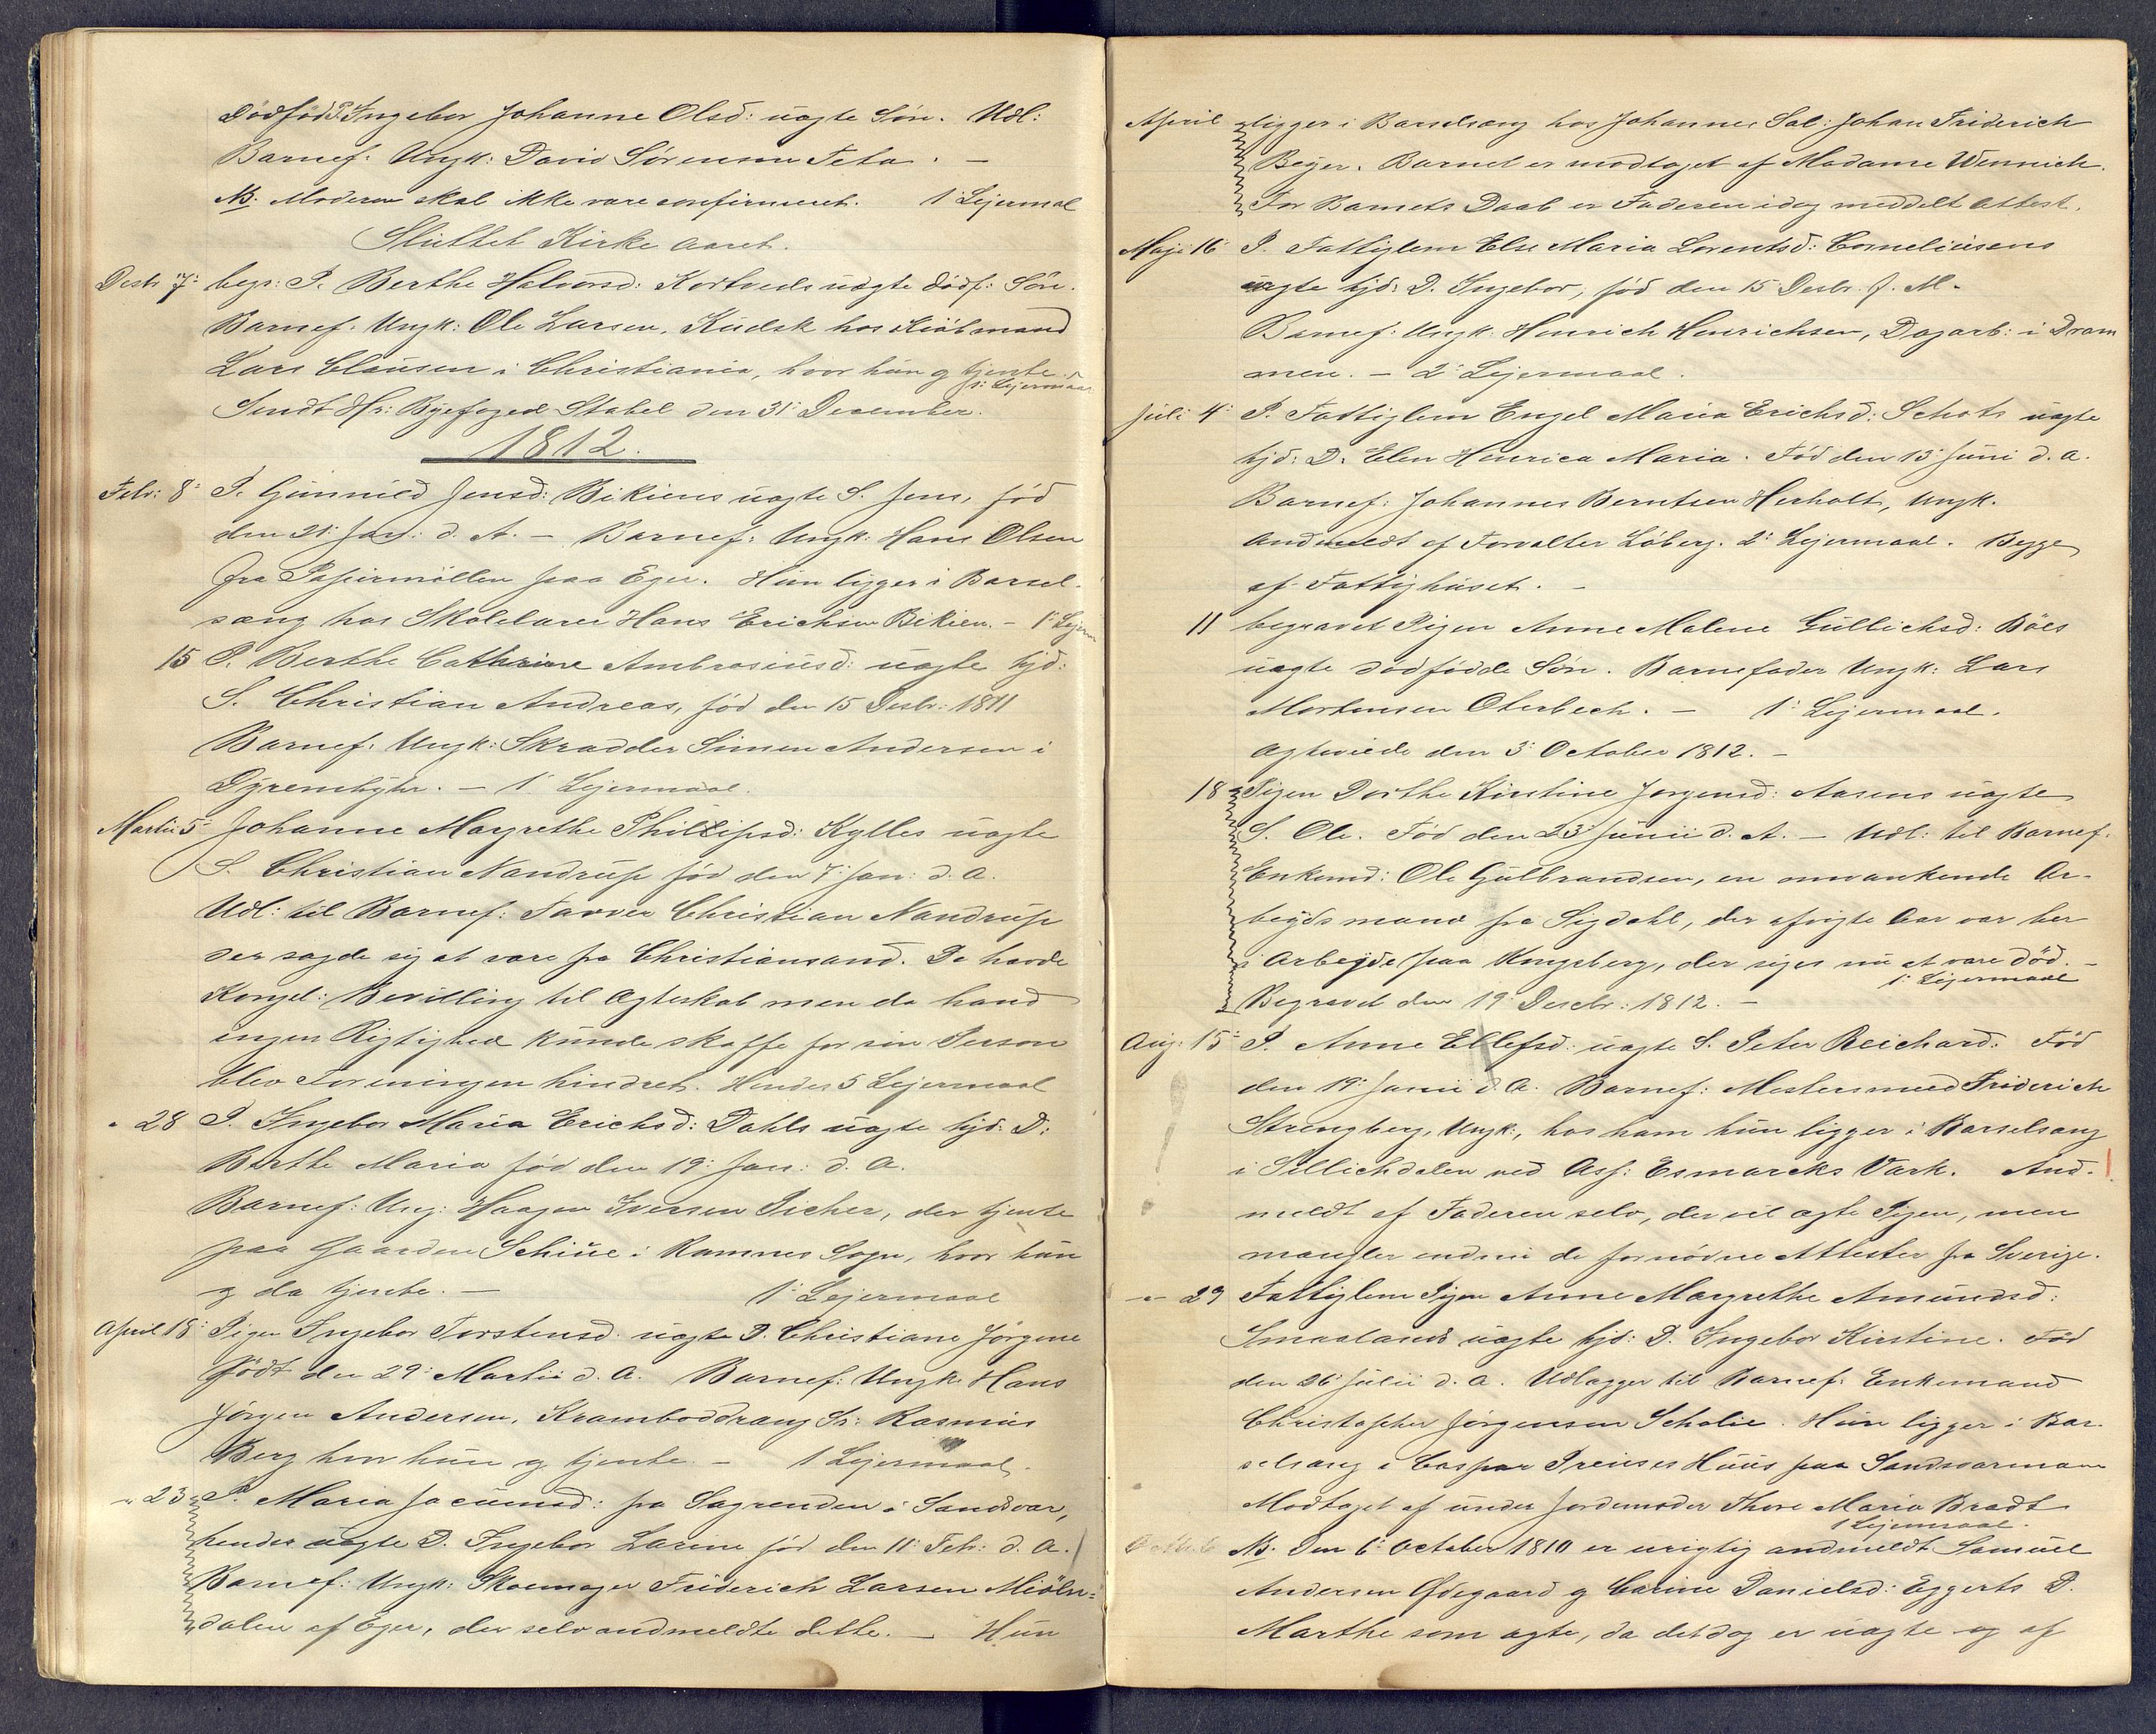 Dödföd P. Ingebor Johanne Olsd: uægte Sön. Udl:
Barnef: Ungk: David Sörensen Feta. —
NB. Moderen skal ikke være confirmeret. 1 Lejermal
Sluttet Kirke aaret.
Decbr 7: begr: P. Berthe Halvorsd: Kortveds uægte dödf: Sön.
Barnef. Ungk: Ole Larsen, Kudsk hos Kiöbmand
Lars Clausen i Christiania, hvor hun og tjente.
1: Lejermaal
Sendt Hr: Byefoged Stabel den 31: December.
1812.
Febr: 8: P. Gunnild Jensd: Bikiens uægte S. Jens, föd
den 21: Jan: d. A. — Barnef: Ungk: Hans Olsen
fra Papirmöllen paa Eger. Hun ligger i Barsel-
sæng hos Skolelærer Hans Erichsen Bikien. — 1: Lejerm
15 P. Berthe Cathrine Ambrosiusd: uægte hjd:
S. Christian Andreas, föd den 15 Desbr: 1811
Barnef: Ungk: Skrædder Simen Andersen i
Dyrendahln. — 1 Lejermaal.
Martii 5: Johanne Margrethe Phillipsd: Kylles uægte
S. Christian Nandrup föd den 7: Jan: d. A.
Udl: til Barnef: Farver Christian Nandrup
der sagde sig at være fra Christiansand. De havde
Kongel: Bevilling til Ægteskab men da hand
ingen Rigtighed kunde skaffe for sin Person
blev Foreningen hindret. Hendes 5 Lejermaal
" 28 P. Ingebor Maria Erichsd: Dahls uægte hjd: D:
Berthe Maria föd den 19: Jan: d. A.
Barnef: Ung: Haagen Iversen Picher, der tjente
paa Gaarden Schiüe i Ramnes Sogn, hvor hun
og da tjente. — 1: Lejermaal
April 18: Pigen Ingebor Torstensd: uægte D. Christiane Jörgine
födt den 29: Martii d. A. Barnef: Ungk: Hans
Jörgen Andersen, Kramboddræng Hr: Rasmus
Berg hvor hun og tjente. — 1 Lejermaal.
" 23 P. Maria Jacumsd: fra Sagrenden i Sandsvær,
hendes uægte D. Ingebor Larine föd den 11: Feb: d. A.
Barnef: Ungk: Skoemager Friderich Larsen Miöln-
dalen af Eger, der selv andmeldte dette. — Hun
April ligger i Barselsæng hos Johannes Sal: Johan Friderich
Beyer. Barnet er modtaget af Madame Wennich.
For Barnets Daab er Faderen idag meddelt Attest.
Maji 16 P. Fattiglem Else Maria Lorentsd: Corneliusens
uægte hjd: D. Ingebor, föd den 15 Desbr. f. A.
Barnef: Ungk: Henrich Henrichsen, Dagarb: i Dram
men. — 2: Lejermaal.
Juli 4: P. Fattiglem Engel Maria Erichsd: Schots uægte
hjd: D. Elen Henrica Maria. Föd den 13: Juni d. A.
Barnef: Johannes Berntsen Herholt, Ungk.
andmeldt af Forvalter Löberg. 2: Lejermaal. Begge
af Fattighuset. —
11 begravet Pigen Anne Malene Gullichsd: Böes
uægte dödfödde Sön. Barnefader Ungk: Lars
Mortensen Oterbech. — 1: Lejermaal.
Ægteviede den 3: October 1812. —
18 Pigen Dorthe Kirstine Jorgensd: Aasens uægte
S. Ole. Föd den 23 Junii d. A. — Udl: til Barnef:
Enkemd: Ole Gulbrandsen, en omvankende Ar-
beyds mand fra Sigdahl, der afvigte Aar var her
i Arbeyde paa Kongsberg, der siges nu at være död. —
1: Lejermaal
Begravet den 19: Desbr: 1812. —
Aug: 15: P. Anne Ellefsd: uægte S. Peter Reichard. Föd
den 19: Junii d. A. Barnef: Mestersmed Friderich
Strengberg, Ungk:, hos ham hun ligger i Barselsæng
i Sellichdalen ved Ass: Esmarcks Værk. And-
meldt af Faderen selv, der vil ægte Pigen, men
mangler endnu de fornödne Attester fra Sverige.
" 29 Fattiglem Pigen Anne Margrethe Amundsd:
Smaalands uægte hjd: D. Ingebor Kirstine. Föd
den 26: Julii d. A. Udlægger til Barnef: Enkemand
Christopher Jörgensen Scholie. Hun ligger i Bar-
selsæng i Caspar Preuses Huus paa Sandsværmoen
Modtaget af under Jordemoder Thore Maria Bradt
1 Lejermaal.
NB. Den 6: October 1810 er urigtig andmeldt Samuel
Andersen Ödegaard og Carine Danielsd: Eggerts D.
Marthe som ægte, da det dog er uægte og af